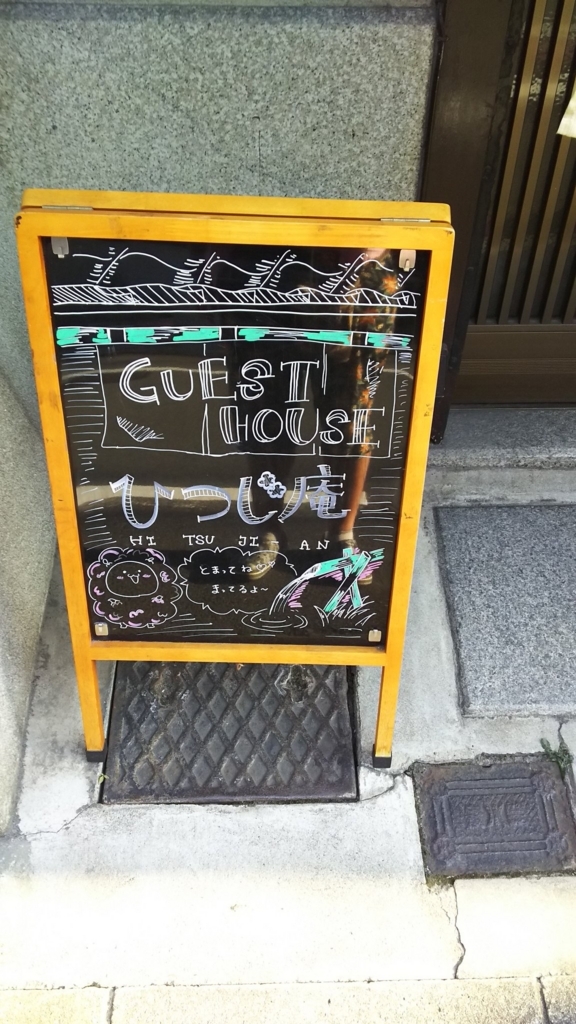 GUEST
HOUSE
ひつじ庵
HI TSU JI - AN
とまってね♡♡
まってるよ～